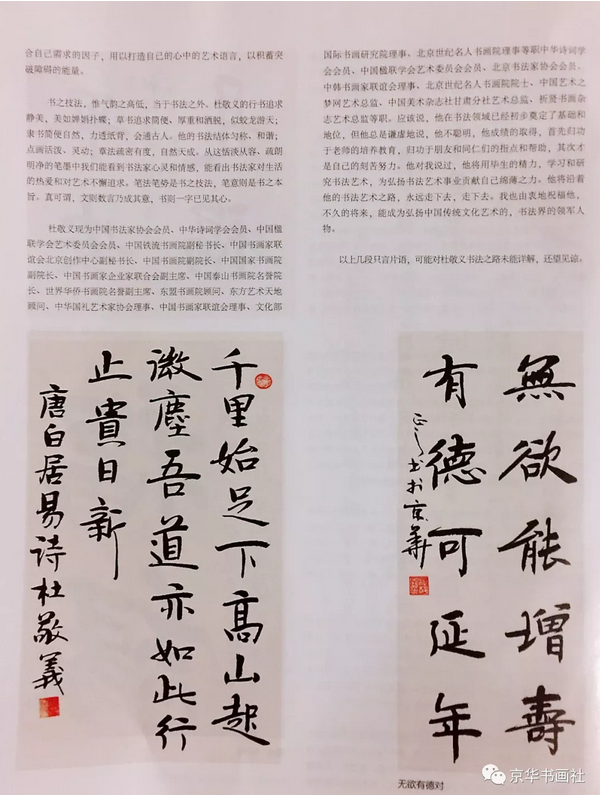 合自己需求的因子，用以打造自己的心中的艺术语言，以积蓄突
破障碍的能量。
书之技法，惟气韵之高低，当于书法之外。杜敬义的行书追求
静美，美如婵娟扑蝶；草书追求简便，厚重和洒脱，似蛟龙游天；
隶书简便自然，力透纸背，会通古人。他的书法结体匀称、和谐；
点画活泼、灵动；章法疏密有度，自然天成。从这恬淡从容、疏朗
明净的笔墨中我们能看到书法家心灵和情感，能看出书法家对生活
的热爱和对艺术不懈追求。笔法笔势是书之技法，笔意则是书之本
旨。真可谓，文则数言乃成其意，书则一字已见其心。
杜敬义现为中国书法家协会会员、中华诗词学会会员、中国楹
联学会艺术委员会会员、中国铁流书画院副秘书长、中国书画家联
谊会北京创作中心副秘书长、中国书画院副院长、中国国家书画院
副院长、中国书画家企业家联合会副主席、中国泰山书画院名誉院
长、世界华侨书画院名誉副主席、东盟书画院顾问、东方艺术天地
顾问、中华国礼艺术家协会理事、中国书画家联谊会理事、文化部
国际书画研究院理事、北京世纪名人书画院理事等职中华诗词学
会会员、中国楹联学会艺术委员会会员、北京书法家协会会员、
中韩书画家联谊会理事、北京世纪名人书画院院士、中国艺术之
梦网艺术总监、中国美术杂志社甘肃分社艺术总监、祈贤书画杂
志艺术总监等职。应该说，他在书法领域已经初步奠定了基础和
地位，但他总是谦虚地说，他不聪明，他成绩的取得，首先归功
于老师的培养教育，归功于朋友和同仁们的指点和帮助，其次才
是自己的刻苦努力。他对我说过，他将用毕生的精力，学习和研
究书法艺术，为弘扬书法艺术事业贡献自己绵薄之力。他将沿着
他的书法艺术之路，永远走下去，走下去。我也由衷地祝福他，
不久的将来，能成为弘扬中国传统文化艺术的，书法界的领军人
物。
以上几段只言片语，可能对杜敬义书法之路未能详解，还望见谅。
千里始足下高山起
微塵吾道亦如此行
止貴日新
唐白居易诗杜敬義
無欲能增壽
有德可延年
正之书於京華
无欲有德对
京华书画社